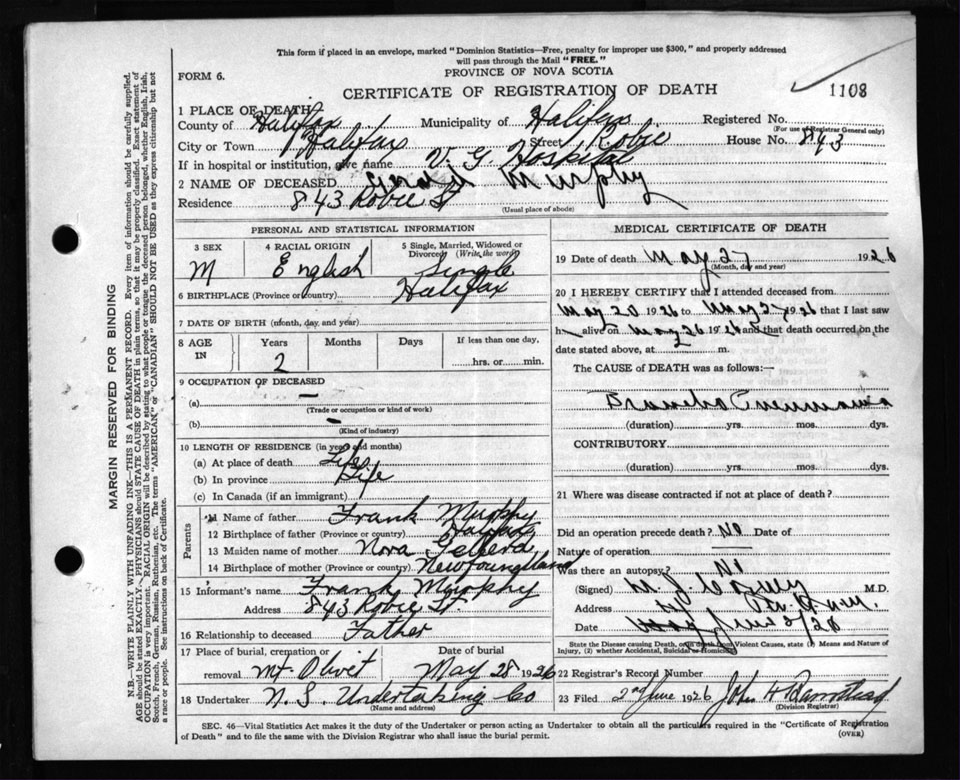 This form if placed in an envelope, marked "Dominion Statistics—Free, penalty for improper use $300," and properly addressed
will pass through the Mail "FREE."
FORM 6.
PROVINCE OF NOVA SCOTIA
CERTIFICATE OF REGISTRATION OF DEATH
1108
1 PLACE OF DEATH
County of Halifax Municipality of Halifax Registered No.
(For use of Registrar General only)
City or Town Halifax Street Robie House No. 843
If in hospital or institution, give name V. G Hospital
2 NAME OF DECEASED Murphy
Residence 843 Robie St
(Usual place of abode)
PERSONAL AND STATISTICAL INFORMATION
3 SEX
M
4 RACIAL ORIGIN
English
5 Single, Married, Widowed or
Divorced? (Write the word)
Single
6 BIRTHPLACE (Province or country) Halifax
7 DATE OF BIRTH (month, day, and year)
8 AGE
IN
Years
2
Months
Days
If less than one day,
hrs. or min.
9 OCCUPATION OF DECEASED
(a) —
(Trade or occupation or kind of work)
(b) —
(Kind of industry)
10 LENGTH OF RESIDENCE (in years and months)
(a) At place of death Life
(b) In province Life
(c) In Canada (if an immigrant)
Parents
11 Name of father Frank Murphy
12 Birthplace of father (Province or country) Halifax
13 Maiden name of mother Nora
14 Birthplace of mother (Province or country) Newfoundland
15 Informant's name Frank Murphy
Address 843 Robie St.
16 Relationship to deceased Father
17 Place of burial, cremation or
removal Mt Olivet
Date of burial
May 28 1926
18 Undertaker N. S. Undertaking Co
(Name and address)
MEDICAL CERTIFICATE OF DEATH
19 Date of death May 27 1926
(Month, day and year)
20 I HEREBY CERTIFY that I attended deceased from
May 20 1926 to May 27 1926 that I last saw
h alive on May 26 1926 and that death occurred on the
date stated above, at m.
The CAUSE of DEATH was as follows:—
Broncho Pneumonia
(duration) yrs. mos. dys.
CONTRIBUTORY
(duration) yrs. mos. dys.
21 Where was disease contracted if not at place of death?
Did an operation precede death? No Date of
Nature of operation
Was there an autopsy? No
(Signed) M. D.
Address
Date June 2/26
State the Disease causing Death, and in death from Violent Causes, state (1) Means and Nature of
Injury, (2) whether Accidental, Suicidal or Homicidal
22 Registrar's Record Number
23 Filed 2nd June 1926 John H
(Division Registrar)
SEC. 46—Vital Statistics Act makes it the duty of the Undertaker or person acting as Undertaker to obtain all the particulars required in the "Certificate of Registration
of Death" and to file the same with the Division Registrar who shall issue the burial permit.
(OVER)
MARGIN RESERVED FOR BINDING
N.B.—WRITE PLAINLY WITH UNFADING INK—THIS IS A PERMANENT RECORD. Every item of information should be carefully supplied.
AGE should be stated EXACTLY. PHYSICIANS should STATE CAUSE OF DEATH in plain terms, so that it may be properly classified. Exact statement of
OCCUPATION is very important. RACIAL ORIGIN will be described by stating to what people or tongue the deceased person belonged, whether English, Irish,
Scotch, French, German, Russian, Ruthenian, etc. The terms "AMERICAN" or "CANADIAN" SHOULD NOT BE USED as they express citizenship but not
a race or people. See instructions on back of Certificate.